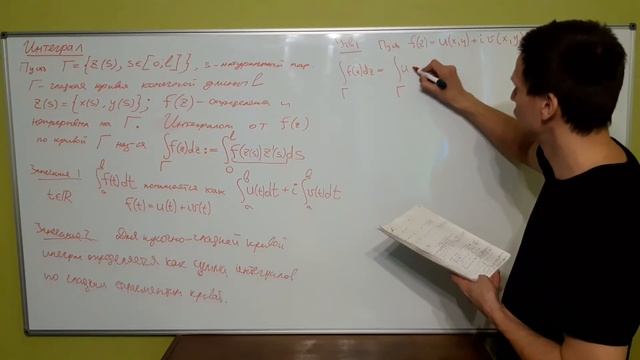 Интеграл
Пусть Γ = {z(s), s∈[0,l]}, s-натуральный пар.
Γ-гладкая кривая конечной длины l
z(s) = {x(s), y(s)}; f(z) - определена и
непрерывна на Γ. Интегралом от f(z)
по кривой Γ наз-ся ∫_Γ f(z)dz := ∫_0^l f(z(s)) z'(s) ds
Замечание 1 ∫_a^b f(t)dt понимается как ∫_a^b u(t)dt + i∫_a^b v(t)dt
t∈ℝ f(t) = u(t) + iv(t)
Замечание 2 Для кусочно-гладкой кривой
интеграл определяется как сумма интегралов
по гладким фрагментам кривой.
Утв 1 Пусть f(z) = u(x,y) + i v(x,y)
∫_Γ f(z)dz = ∫_Γ u